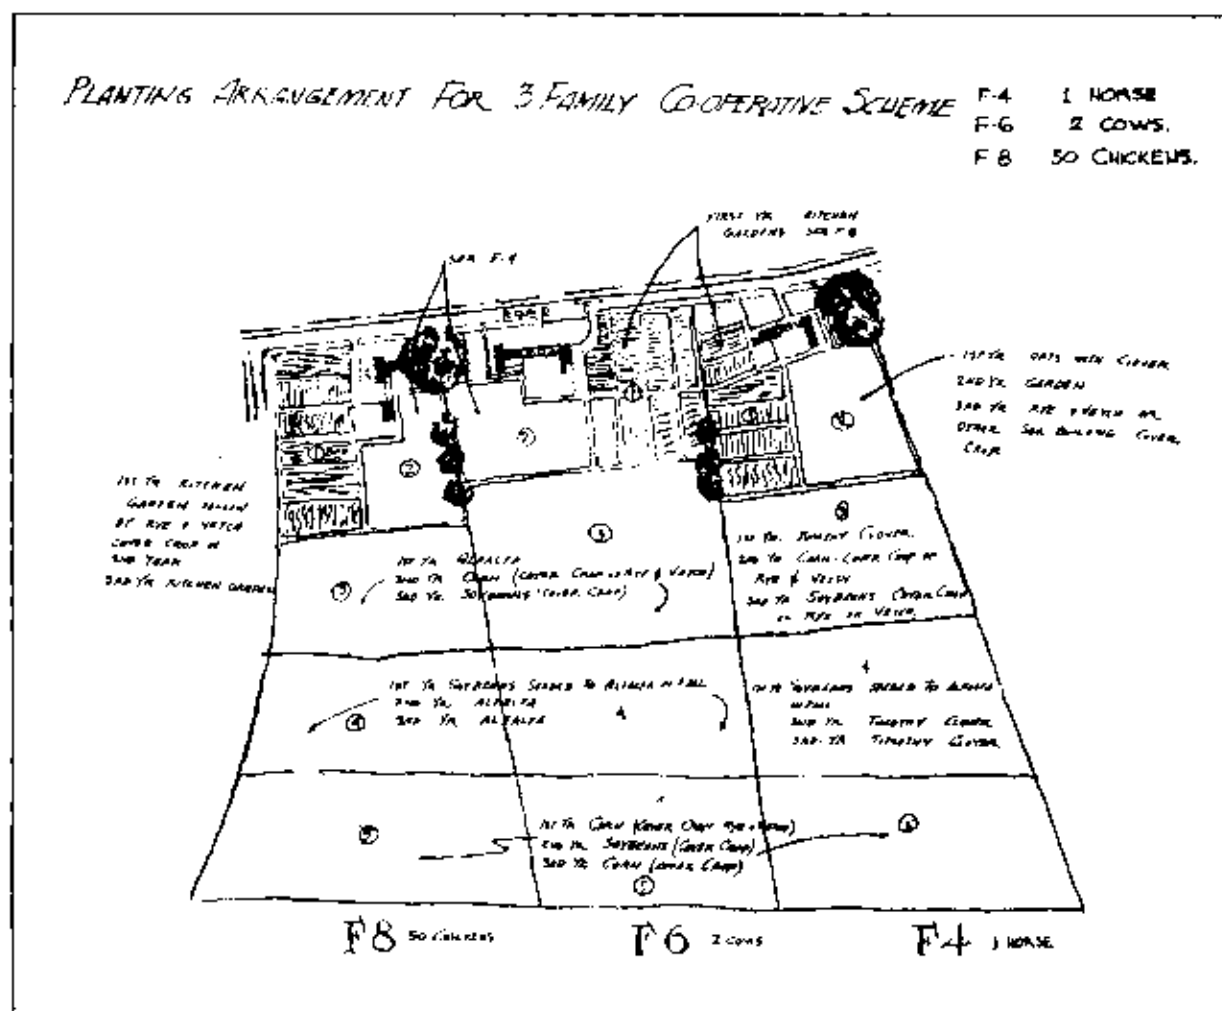 PLANTING ARRANGEMENT FOR 3 FAMILY CO-OPERATIVE SCHEME
F-4 1 HORSE
F-6 2 COWS.
F 8 50 CHICKENS.
FIRST YR KITCHEN
GARDENS SEE F-8
SEE F-4
1ST YR OATS WITH CLOVER
2ND YR GARDEN
3RD YR RYE & VETCH OR
OTHER SOIL BUILDING COVER
CROP
1ST YR KITCHEN
GARDEN FOLLOW
BY RYE & VETCH
COVER CROP IN
2ND YEAR
3RD YR KITCHEN GARDEN
1
2
3
1ST YR ALFALFA
2ND YR CORN (COVER CROP RYE & VETCH)
3RD YR SOYBEANS (COVER CROP)
1ST YR TIMOTHY CLOVER
2ND YR CORN-COVER CROP OF
RYE & VETCH
3RD YR SOYBEANS COVER CROP
RYE OR VETCH
4
1ST YR SOYBEANS SEEDED TO ALFALFA IN FALL
2ND YR ALFALFA
3RD YR ALFALFA
4
1ST YR SOYBEANS SEEDED TO ALFALFA
IN FALL
2ND YR TIMOTHY CLOVER
3RD YR TIMOTHY CLOVER
5
1ST YR CORN (COVER CROP RYE & VETCH)
2ND YR SOYBEANS (COVER CROP)
3RD YR CORN (COVER CROP)
F8 50 CHICKENS
F6 2 COWS
F4 1 HORSE